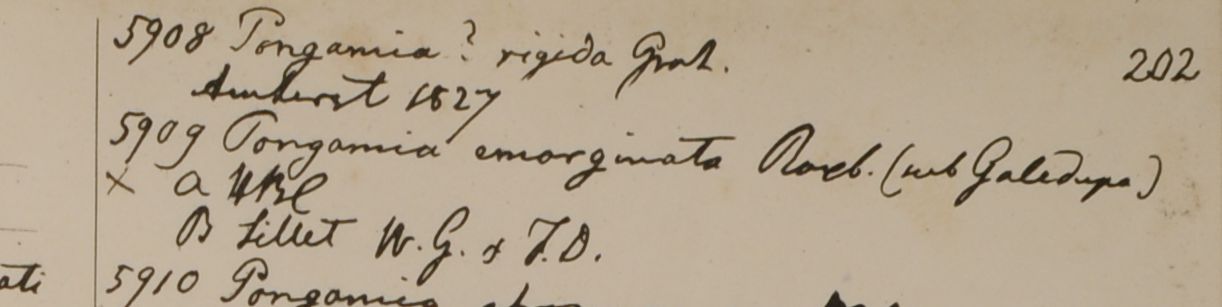 5908 Pongamia? rigida Grah.
202
Amherst 1827
5909 Pongamia emarginata Roxb. (sub Galedupa)
× a HBC
B Sillet W.G. & F.D.
ati
5910 Pongamia